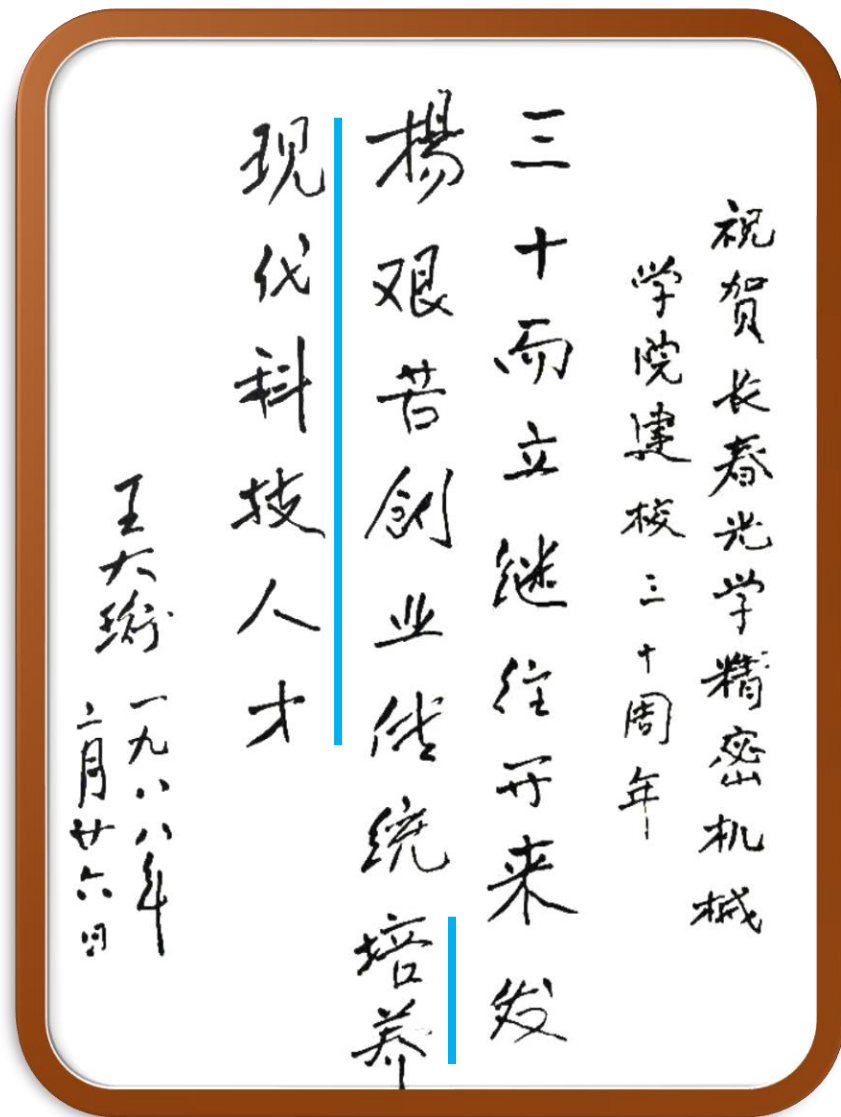 祝贺长春光学精密机械
学院建校三十周年
三十而立继往开来发
揚艰苦创业传统培养
现代科技人才
王大珩
一九八八年
二月廿六日